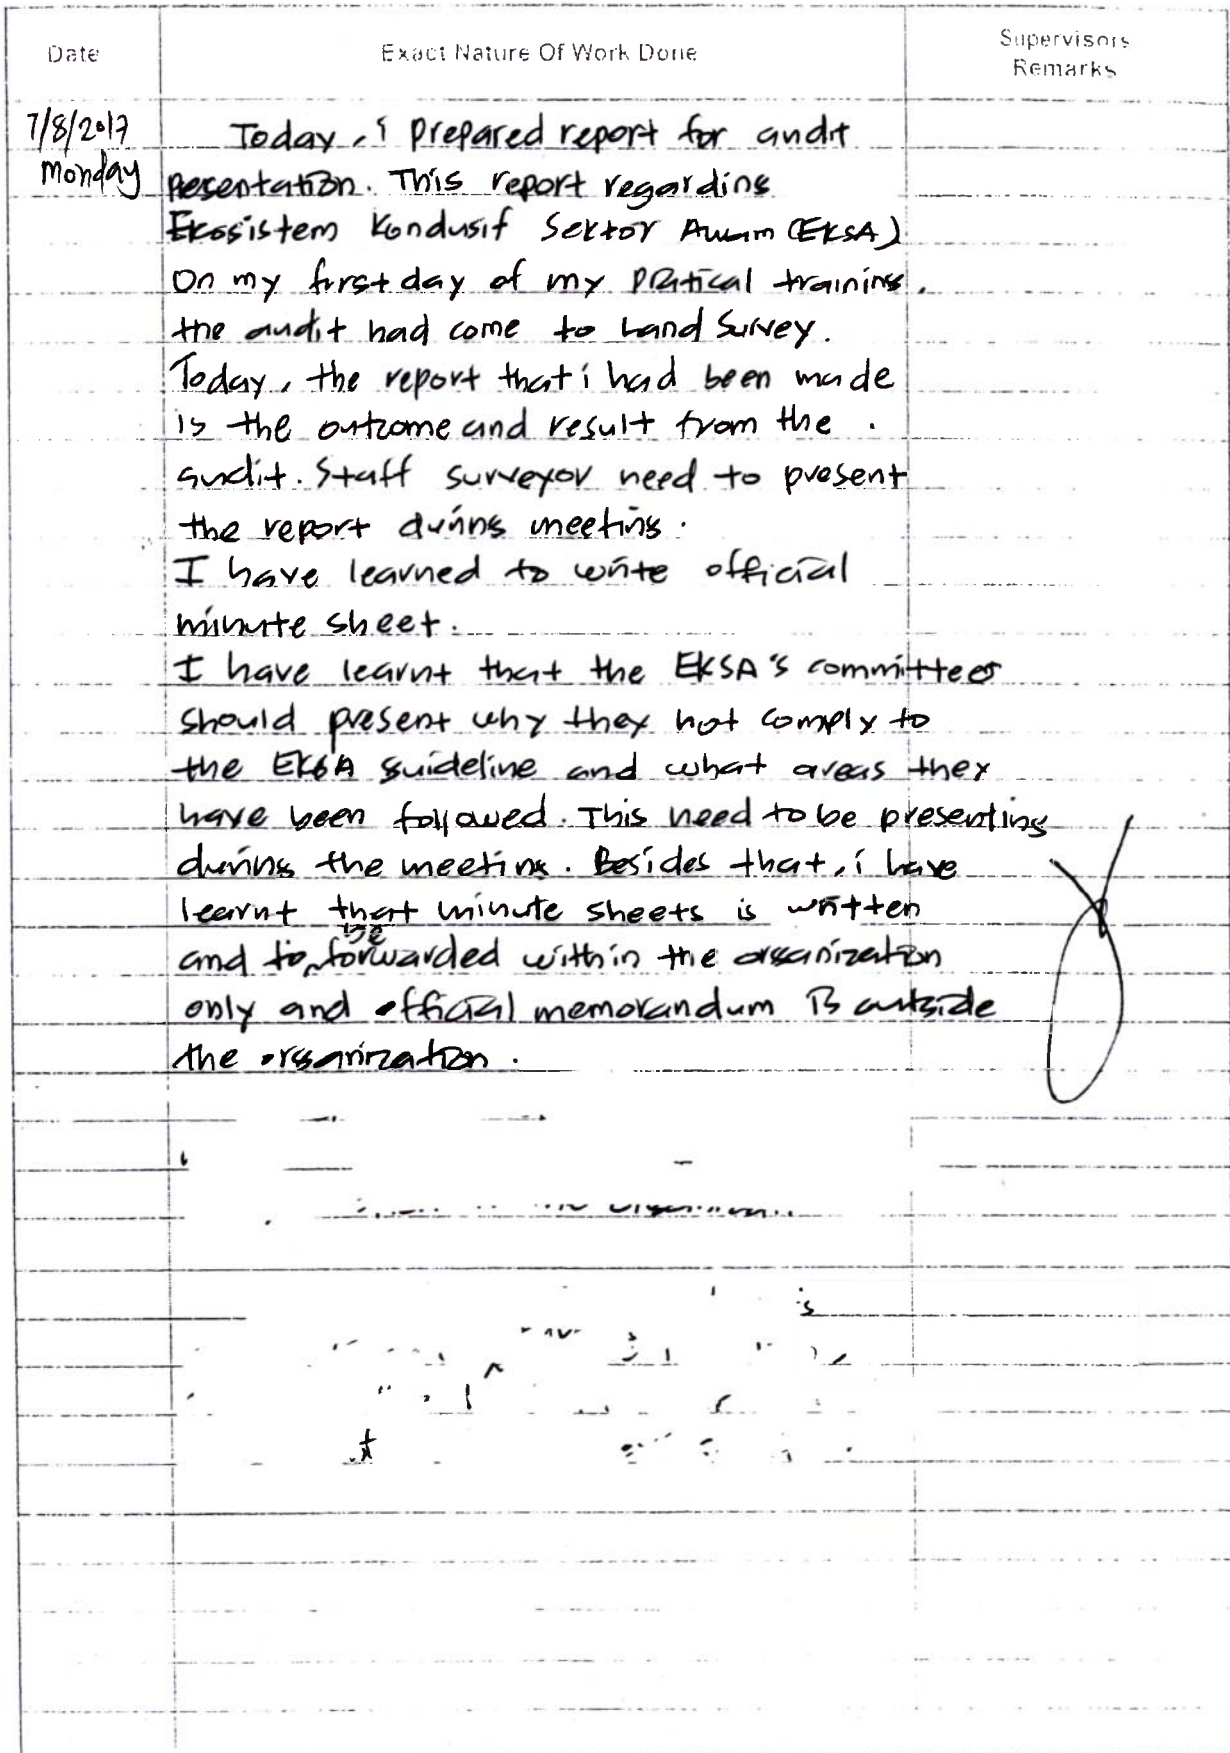 Date Exact Nature Of Work Done Supervisors
Remarks
7/8/2017
Monday
Today, i prepared report for audit
pesentation. This report regarding
Ekosistem Kondusif Sektor Awam (EKSA)
On my first day of my pratical training,
the audit had come to Land Survey.
Today, the report that i had been made
is the outcome and result from the
audit. Staff surveyor need to present
the report during meeting.
I have learned to write official
minute sheet.
I have learnt that the EKSA's committees
should present why they not comply to
the EKSA guideline and what areas they
have been followed. This need to be presenting
during the meeting. Besides that, i have
learnt that minute sheets is written
and to be forwarded within the organization
only and official memorandum is outside
the organization.